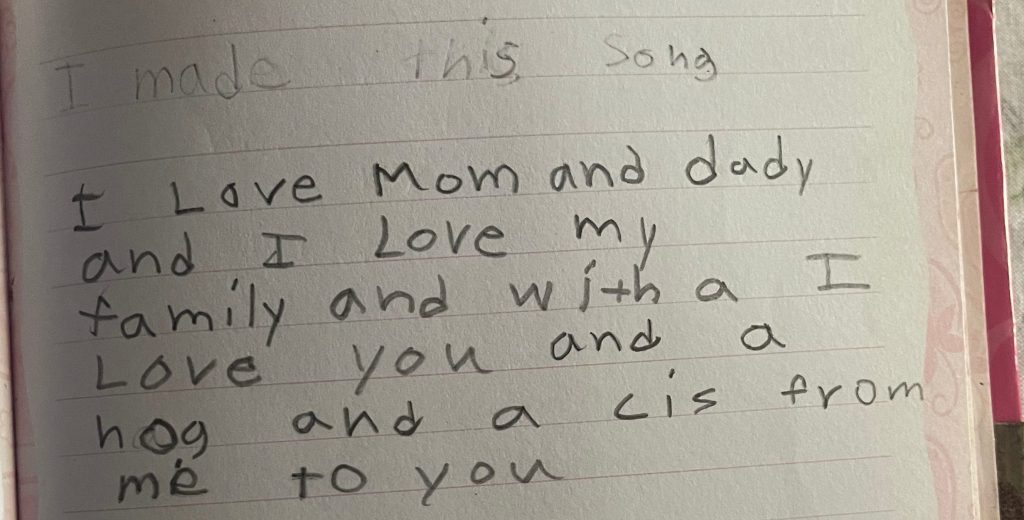 I made this song
I Love Mom and dady
and I Love my
family and with a I
Love you and a
hog and a cis from
me to you